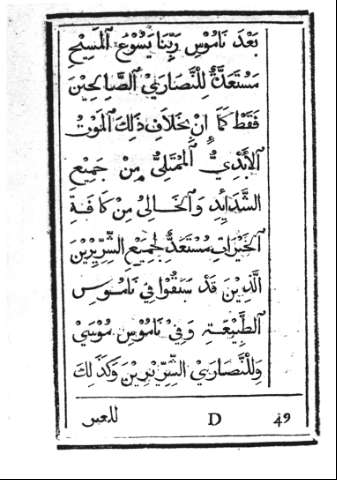 بَعْدَ نَامُوْسِ رَبِّنَا يَسُوْعَ اْلمَسِيْحِ
مُسْتَعَدَّةٌ لِلْنَّصَارَىْ الْصَّالِحِيْنَ
فَقَطْ كَمَا اِنْ بِخَلَافِ ذَلِكَ اْلمَوْتُ
اْلاَبَدِيُّ اْلمُمْتَلِىُّ مِنْ جَمِيْعِ
الشَّدَايِدِ وَاْلخَالِىُ مِنْ كَافَةِ
اْلخَيْرَاتِ مُسْتَعَدٌّ لِجَمِيْعِ الشِّرِّيْرِيْنَ
الَّذِيْنَ قَدْ سَبَقُوْا فِيْ نَامُوْسِ
الْطَّبِيْعَةِ وَفِيْ نَامُوْسِ مُوْسَىْ
وَلِلْنَّصَارَىْ الشِّرِّيْرِيْنَ وَكَذَلِكَ
D ٤٩